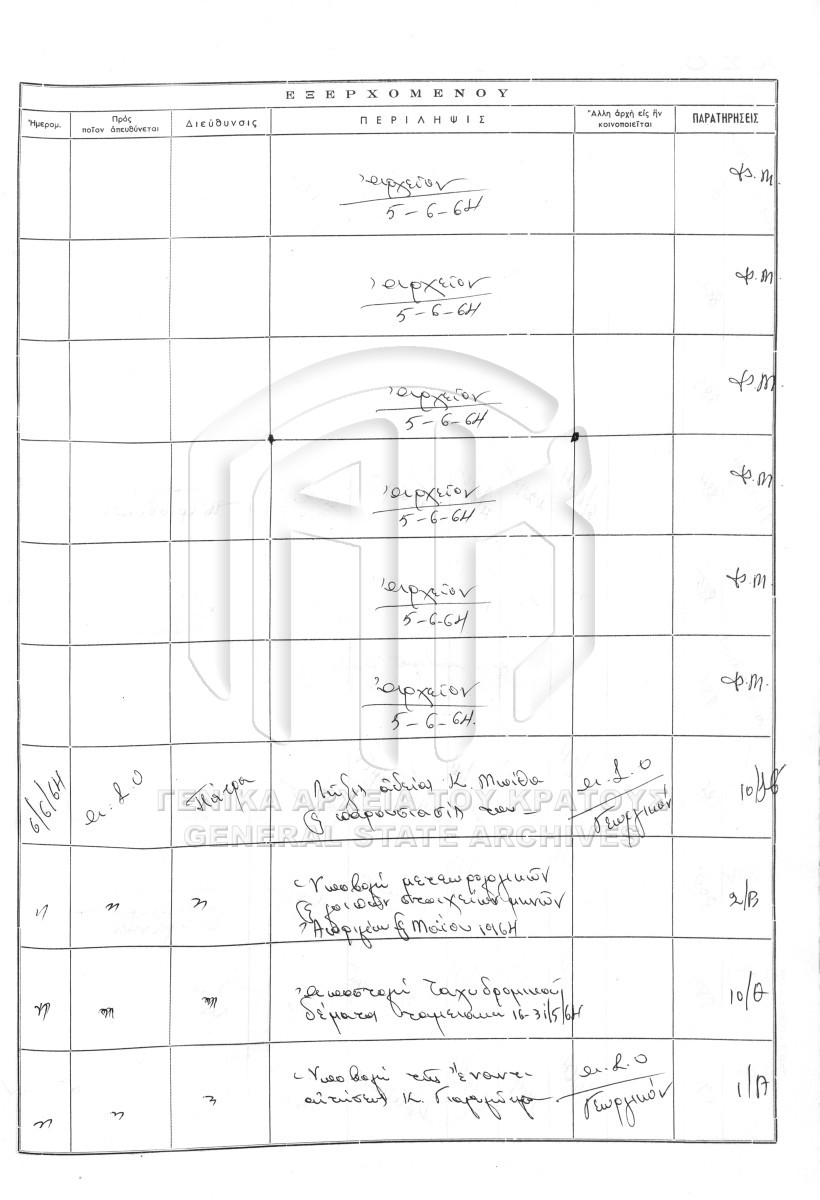 ΕΞΕΡΧΟΜΕΝΟΥ
Ἡμερομ.
Πρὸς ποῖον ἀπευθύνεται
Διεύθυνσις
ΠΕΡΙΛΗΨΙΣ
Ἄλλη ἀρχὴ εἰς ἣν κοινοποιεῖται
ΠΑΡΑΤΗΡΗΣΕΙΣ
ἀρχεῖον
5-6-64
Φ.Μ.
ἀρχεῖον
5-6-64
Φ.Μ.
ἀρχεῖον
5-6-64
Φ.Μ.
ἀρχεῖον
5-6-64
Φ.Μ.
ἀρχεῖον
5-6-64
Φ.Μ.
ἀρχεῖον
5-6-64.
Φ.Μ.
6/6/64
Πάτρα
Λῆξις ἀδείας Κ.
παρουσίασις του
Γεωργικόν
10/
Ὑποβολή μετεωρολογικῶν
λοιπῶν στοιχείων μηνῶν
Ἀπριλίου Μαΐου 1964
2/Β
Ἀποστολή ταχυδρομικοῦ
δέματος 16-31/5/64
10/Θ
Ὑποβολή
αἰτήσεως Κ.
Γεωργικόν
1/Α
ΓΕΝΙΚΑ ΑΡΧΕΙΑ ΤΟΥ ΚΡΑΤΟΥΣ
GENERAL STATE ARCHIVES